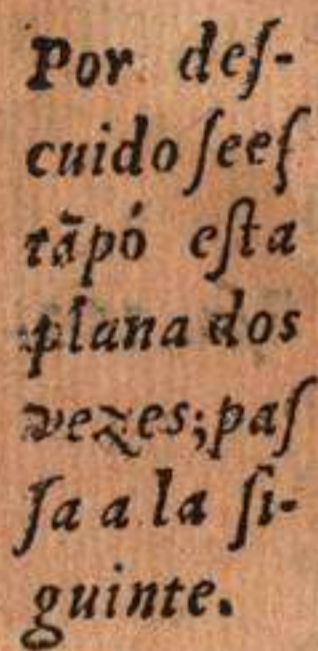 Por deſ-
cuido ſeeſ
tãpó eſta
plana dos
vezes; paſ
ſa a la ſi-
guinte.